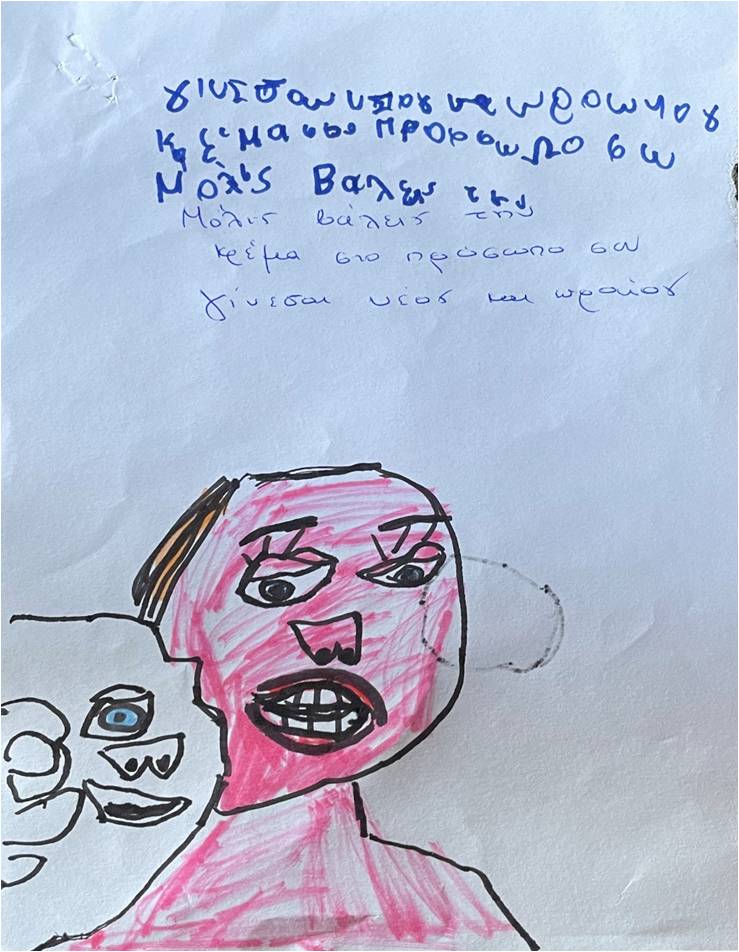 γινεσαι νεος και ωραιος
κρέμα στο προσωπο σου
Μολις Βαλεις την
Μόλις βάλεις την
κρέμα στο πρόσωπο σου
γίνεσαι νέος και ωραίος